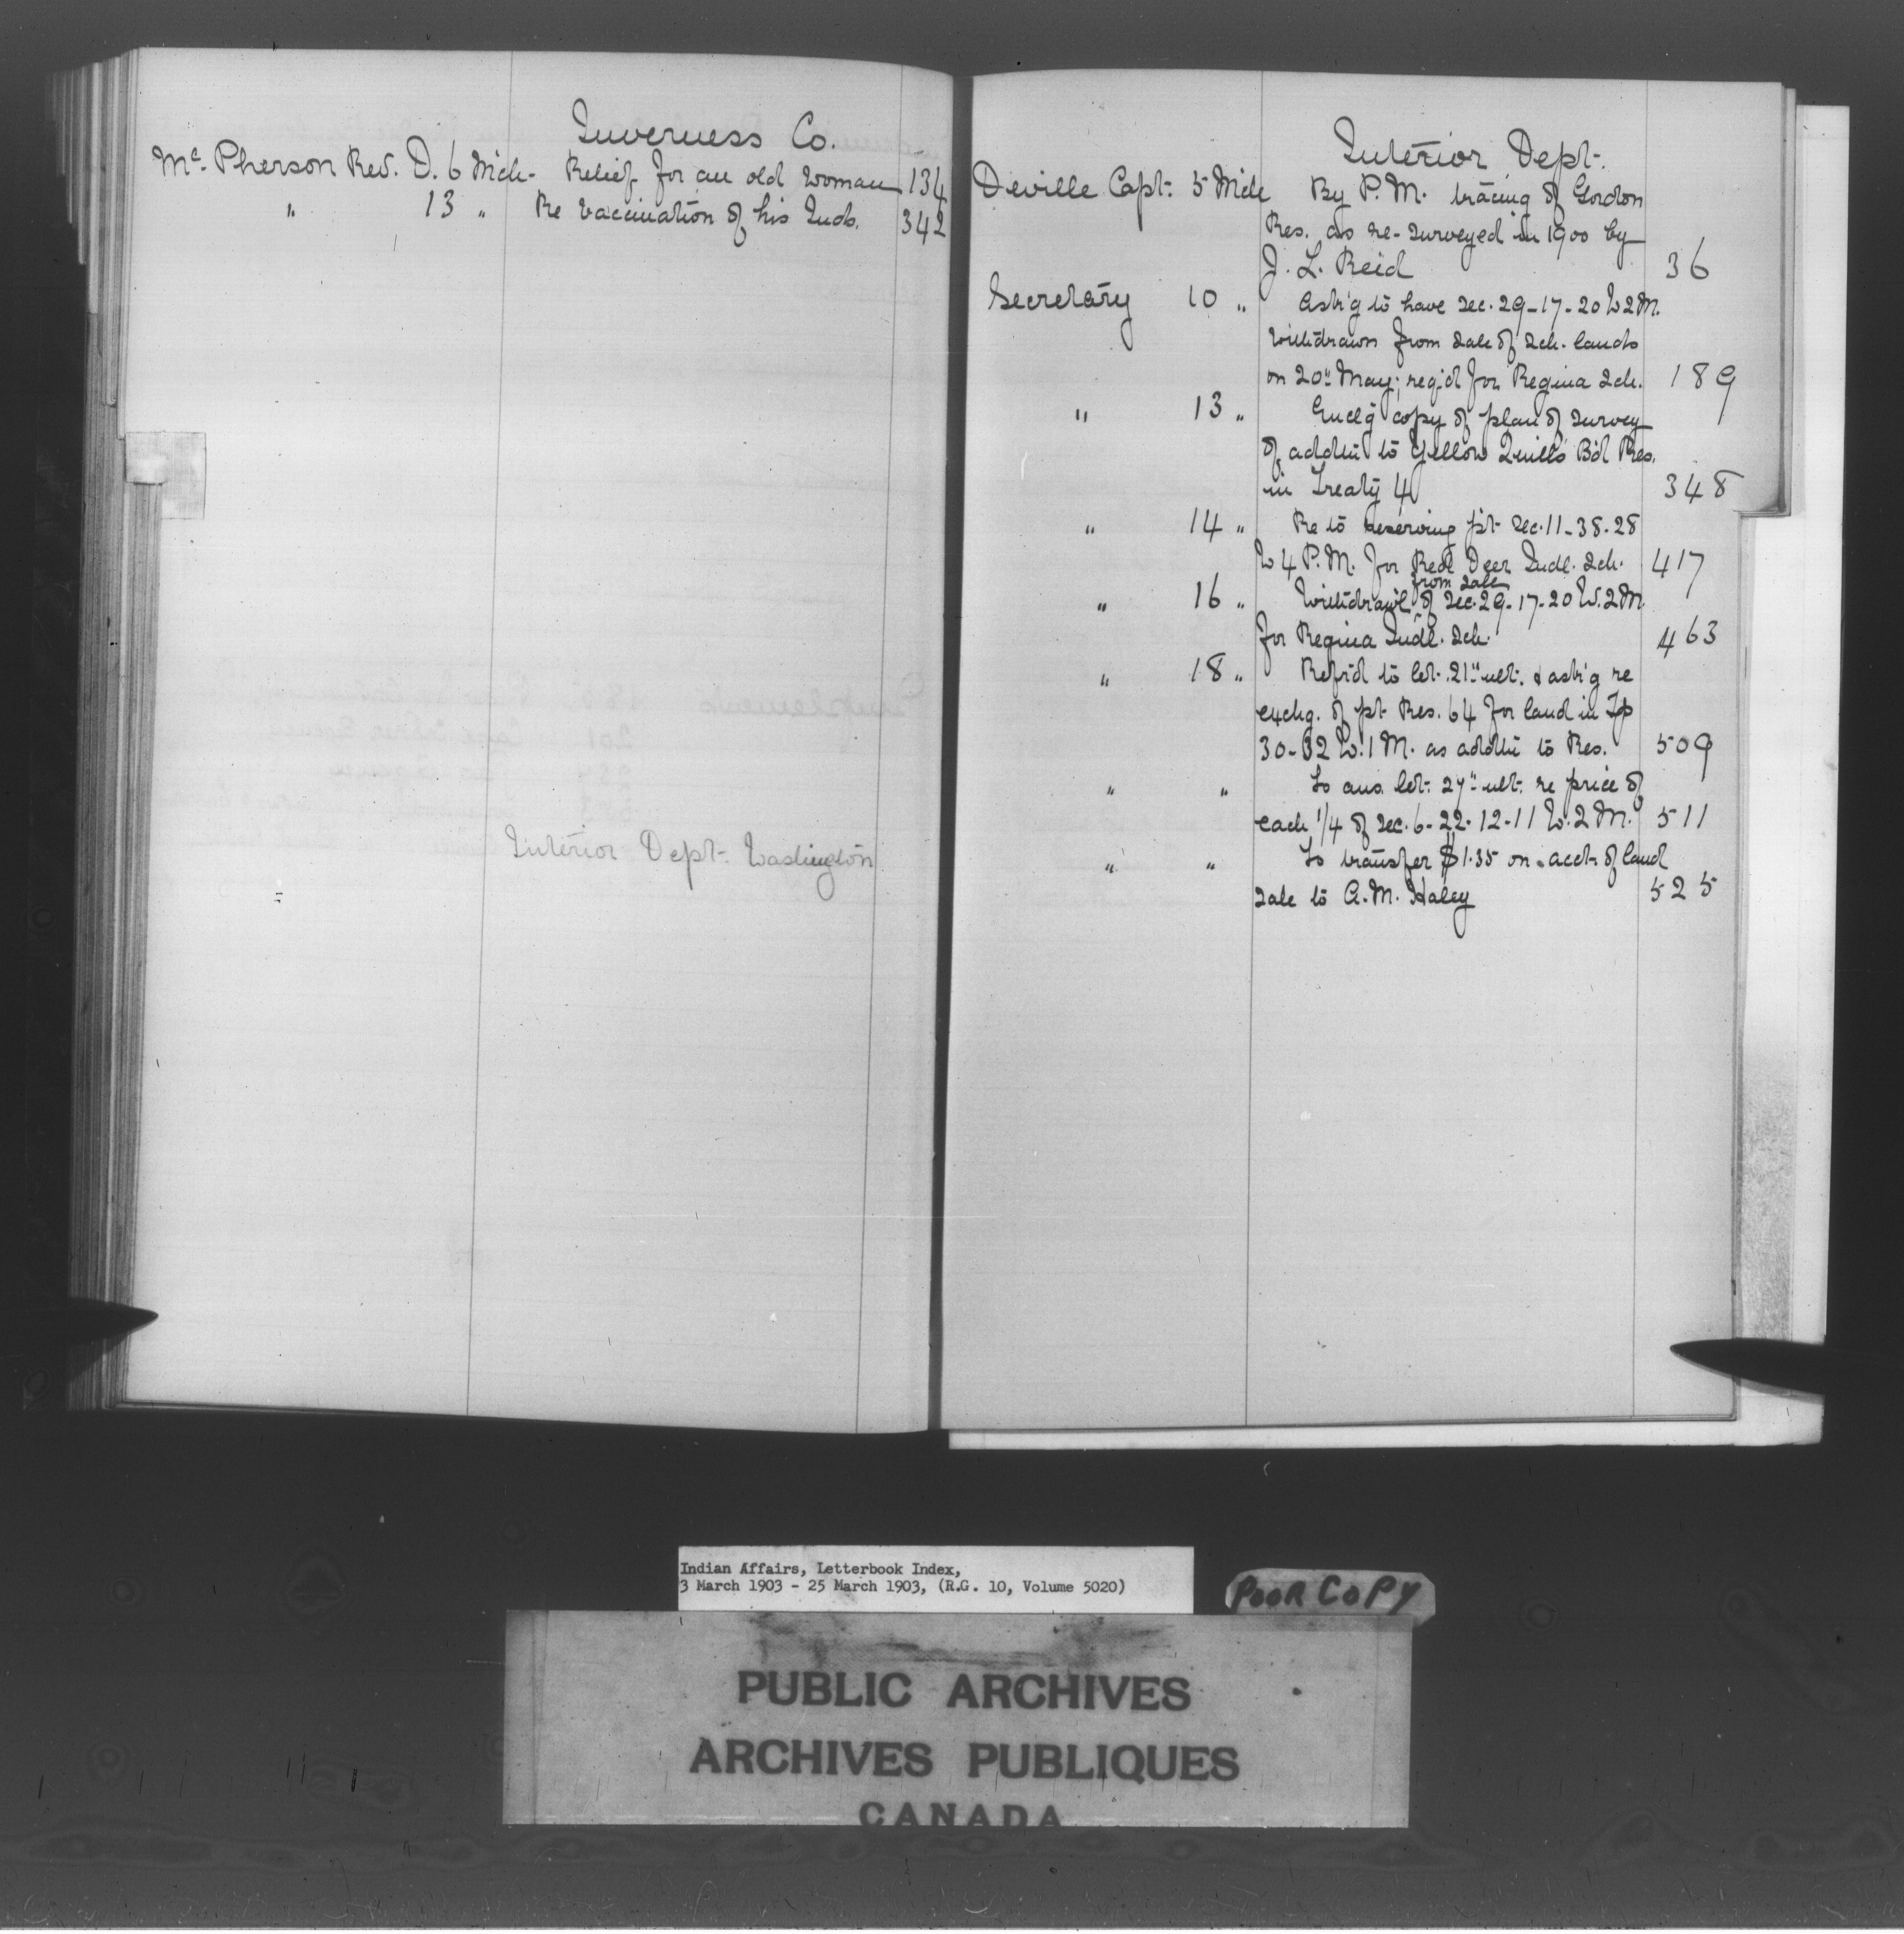 Inverness Co.
McPherson Rev. D. 6 Mch - Relief for an old woman 134
" 13 " Re vaccination of his Inds. 342
Interior Dept. Washington
Interior Dept.
Deville Capt. 5 Mch By P.M. tracing of Gordon
Res. as re-surveyed in 1900 by
J. L. Reid 36
Secretary 10 " Ask'g to have sec. 29-17-20 W2M.
withdrawn from sale of sch. lands
on 20" May; req'd for Regina sch. 189
" 13 " Encl'g copy of plan of survey
of addtn to Yellow Quill's B'd Res.
in Treaty 4 348
" 14 " Re to reserving pt sec. 11-38-28
W4 P.M. for Red Deer Indl. sch. 417
from sale
" 16 " Withdrawl of sec. 29-17-20 W.2M.
for Regina Indl. sch. 463
" 18 " Refr'd to let. 21" ult. & ask'g re
exchg. of pt Res. 64 for land in Tp
30-32 W.1 M. as addtn to Res. 509
" " To ans. let. 27" ult. re price of
each 1/4 of sec. 6-22-12-11 W.2M. 511
" " To transfer $1.35 on acct of land
sale to A.M. Haley 525
Indian Affairs, Letterbook Index,
3 March 1903 - 25 March 1903, (R.G. 10, Volume 5020)
POOR COPY
PUBLIC ARCHIVES
ARCHIVES PUBLIQUES
CANADA